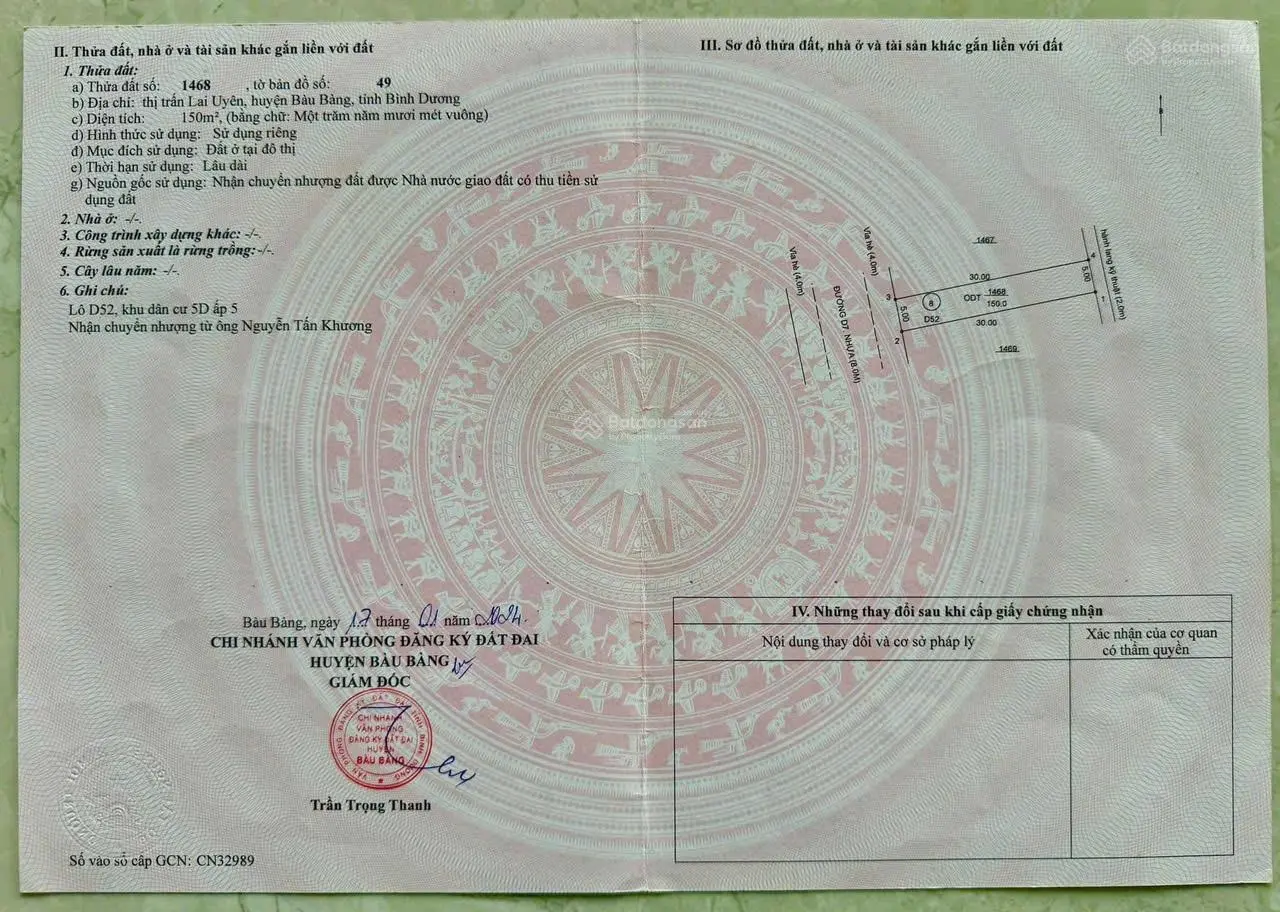 II. Thửa đất, nhà ở và tài sản khác gắn liền với đất
1. Thửa đất:
a) Thửa đất số: 1468 , tờ bản đồ số: 49
b) Địa chỉ: thị trấn Lai Uyên, huyện Bàu Bàng, tỉnh Bình Dương
c) Diện tích: 150m², (bằng chữ: Một trăm năm mươi mét vuông)
d) Hình thức sử dụng: Sử dụng riêng
đ) Mục đích sử dụng: Đất ở tại đô thị
e) Thời hạn sử dụng: Lâu dài
g) Nguồn gốc sử dụng: Nhận chuyển nhượng đất được Nhà nước giao đất có thu tiền sử
dụng đất
2. Nhà ở: -/-.
3. Công trình xây dựng khác: -/-.
4. Rừng sản xuất là rừng trồng: -/-.
5. Cây lâu năm: -/-.
6. Ghi chú:
Lô D52, khu dân cư 5D ấp 5
Nhận chuyển nhượng từ ông Nguyễn Tấn Khương
Bàu Bàng, ngày 17 tháng 01 năm 2024.
CHI NHÁNH VĂN PHÒNG ĐĂNG KÝ ĐẤT ĐAI
HUYỆN BÀU BÀNG
GIÁM ĐỐC
CHI NHÁNH
VĂN PHÒNG
ĐĂNG KÝ ĐẤT ĐAI
HUYỆN
BÀU BÀNG
Trần Trọng Thanh
Số vào sổ cấp GCN: CN32989
III. Sơ đồ thửa đất, nhà ở và tài sản khác gắn liền với đất
Batdongsan
by PropertyGuru
Vỉa hè (4.0m)
ĐƯỜNG D7, NHỰA (8.0M)
Vỉa hè (4.0m)
1467
hành lang kỹ thuật (2.0m)
4
30.00
5.00
3
ODT 1468
150.0
1
8
5.00
D52
30.00
2
1469
Batdongsan
by PropertyGuru
IV. Những thay đổi sau khi cấp giấy chứng nhận
Nội dung thay đổi và cơ sở pháp lý
Xác nhận của cơ quan
có thẩm quyền